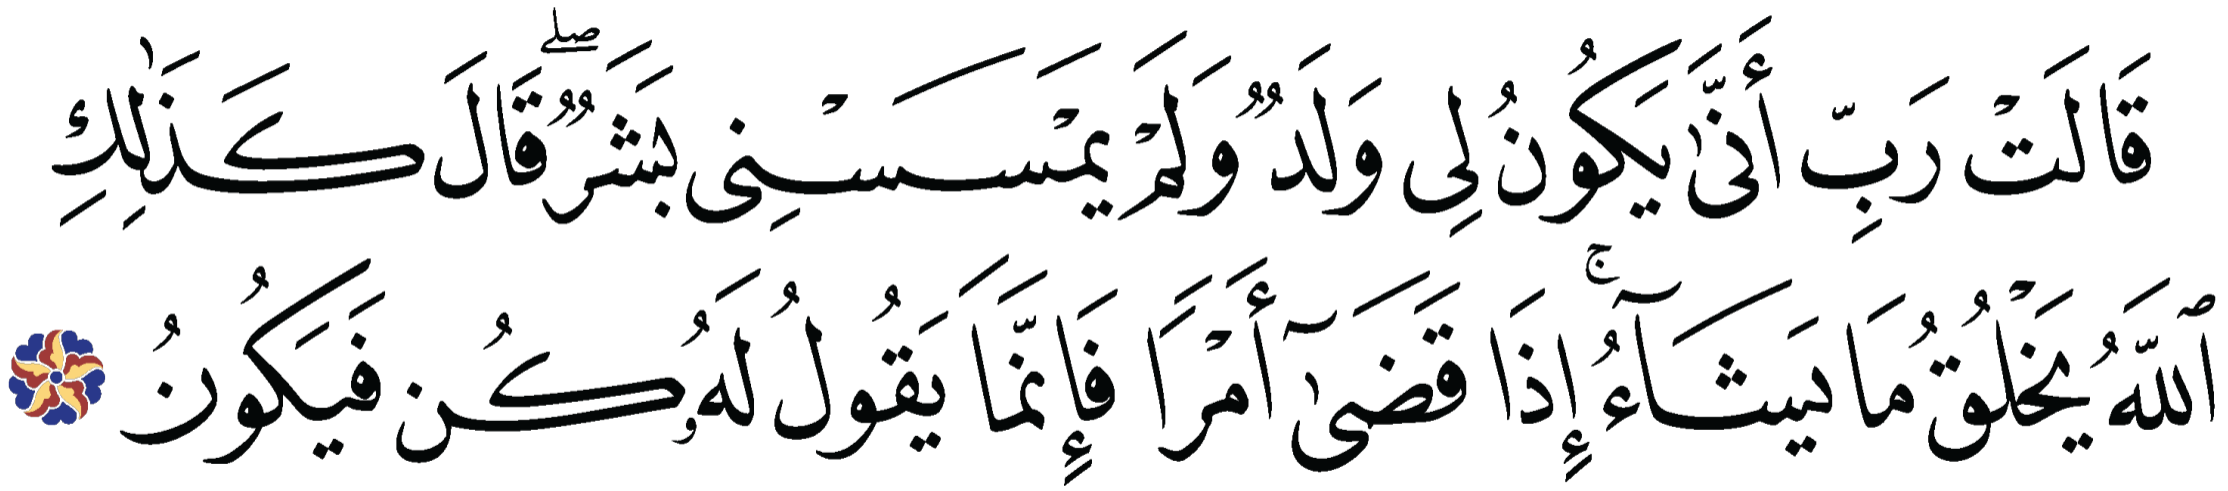 قَالَتْ رَبِّ أَنَّىٰ يَكُونُ لِى وَلَدٌ وَلَمْ يَمْسَسْنِى بَشَرٌ ۖ قَالَ كَذَٰلِكِ
ٱللَّهُ يَخْلُقُ مَا يَشَآءُ ۚ إِذَا قَضَىٰٓ أَمْرًا فَإِنَّمَا يَقُولُ لَهُۥ كُن فَيَكُونُ